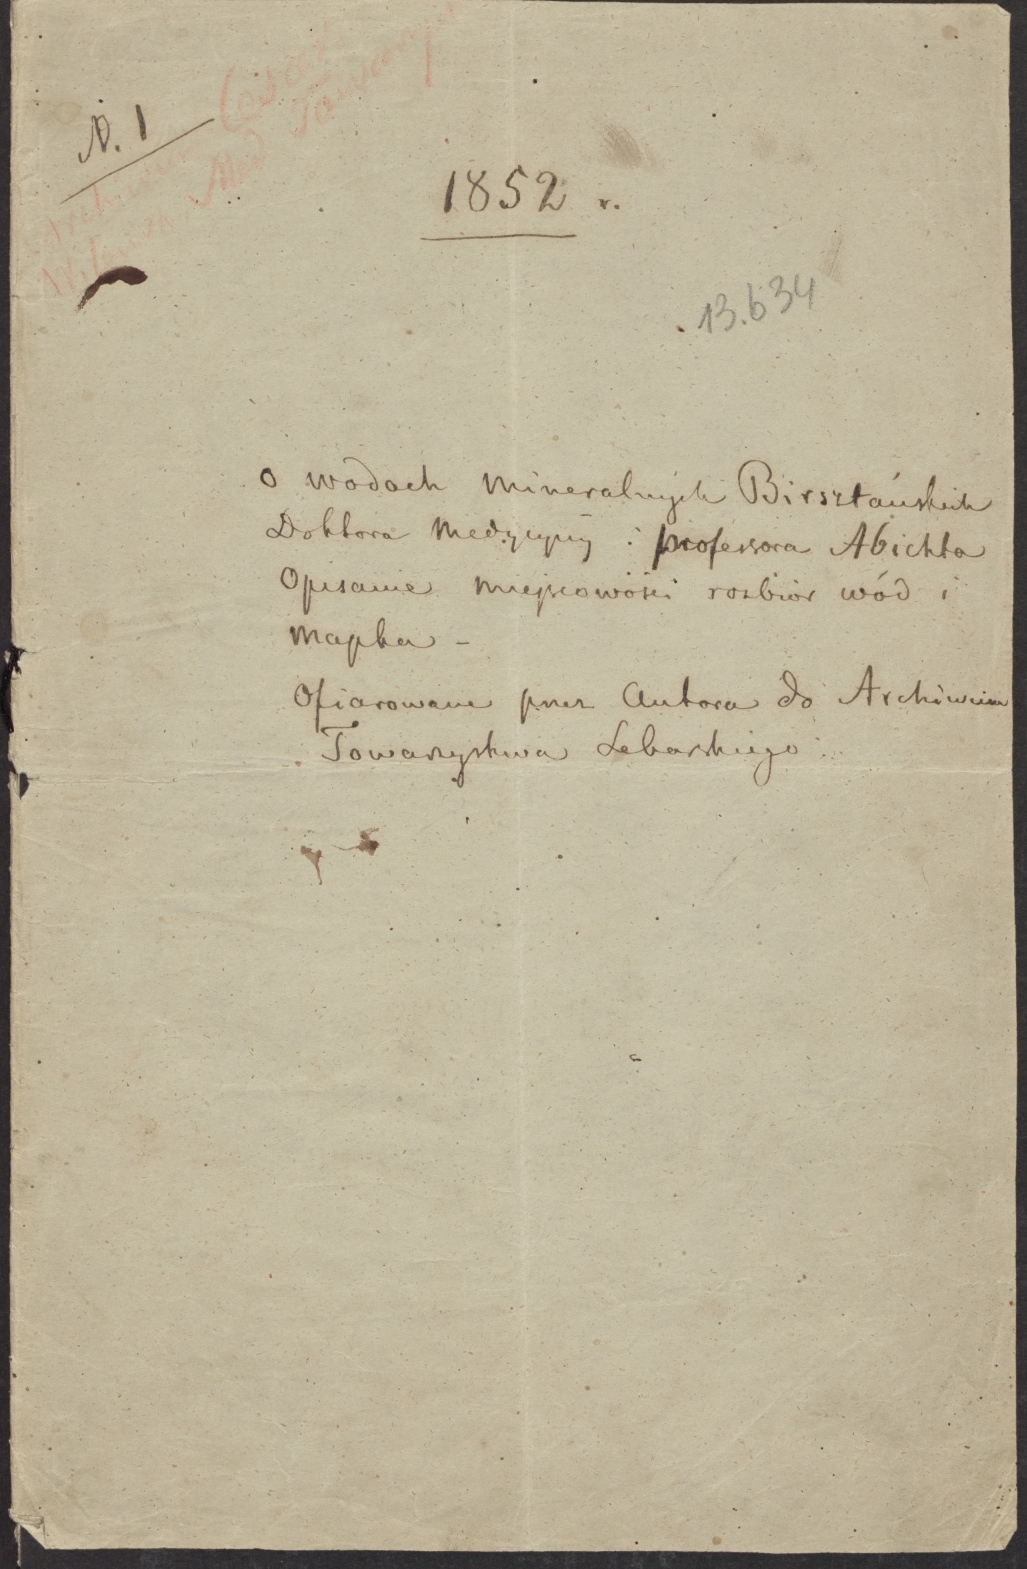 N. 1
Cesar.
Med Towarzys
Archiwum
Wileńsk
1852 r.
13.634
O wodach mineralnych Birsztańskich
Doktora Medycyny i professora Abichta
Opisanie miejscowości rozbiór wód i
mapka –
Ofiarowane przez Autora do Archiwum
Towarzystwa Lekarskiego